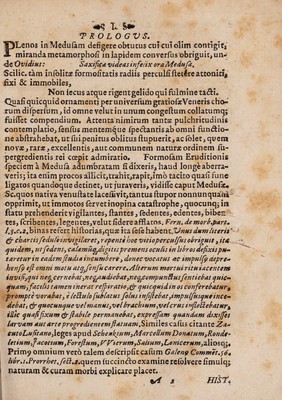 PROLOGVS.
PLenos in Medusam defigere obtutus cui cui olim contigit,
miranda metamorphosi in lapidem conversus obriguit, un-
de Ovidius: Saxifica videas infelix ora Medusa,
Scilic. tàm insolitæ formositatis radiis perculsi stetêre attoniti,
fixi & immobiles,
Non secus atque rigent gelido qui fulmine tacti.
Quasi quicquid ornamenti per universum gratiosæ Veneris cho-
rum dispersum, id omne velut in unum congestum collatumq;
fuisset compendium. Attenta nimirum tante pulchritudinis
contemplatio, sensus mentemque spectantis ab omni functio-
ne abstrahebat, ut sui penitus oblitus stuperet, ac solet, quem
novæ, raræ, excellentis, aut communem naturæ ordinem su-
pergredientis rei cœpit admiratio. Formosam Eruditionis
speciem à Medusa adumbratam si dixeris, haud longè aberra-
veris; ita enim procos allicit, trahit, rapit, imò tacito quasi fune
ligatos quandoque detinet, ut juraveris, vidisse caput Medusæ.
Sc. quos nativa venustate lacessivit, tantus stupor nonnunquam
opprimit, ut immotos servet inopina catastrophe, quocunq; in
statu prehenderit vigilantes, stantes, sedentes, edentes, biben-
tes, scribentes, legentes, velut sidere afflatos.
l.3.c.2. binas resert historias, quæ ita sese habent. Unus dum literis
& chartis
quidem, ut sedens, calamũq; digitis premens oculis in libro defixis pu-
taretur in eadem studia incumbens, donec vocatus ac impulsu depre-
hensus est omni motu atq; sensu carere. Alterum mortui ritu jacentem
invisi, qui neq; cernebat, neq; audiebat, neq; compunctus sentiebat quic-
quam, facilis tamen inerat respiratio, & quicquid in os conferebatur
promptè vorabat, è lectulo sublatus solus instebat, impulsusque ince-
debat, & quocunque vel manu, vel brachium, vel crus inflectebatur,
illic quasi fixum & stabile permanebat, expressam quandam dixisses
larvam aut arte progredientem statuam. Similes casus citante Za-
cuto Lusitano, leges apud Schenkium, Marcellum Donatum, Ronde-
letium, Jacotium, Forestum, VVierum, Salium, Lonicerum, aliosq;
Primo omnium verò talem descripsit casum Galeno Commēt. 56.
lib. 1. Prorrhet. sect. 2. quem succincto examine resolvere simulq;
naturam & curam morbi explicare placet.
A 2 HIST.